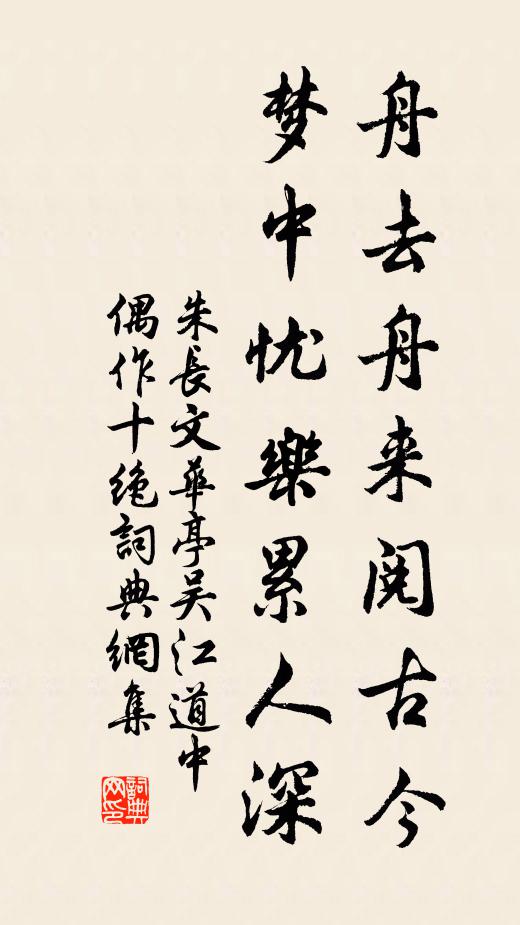 舟去舟来阅古今
梦中忧樂累人深
朱長文華亭吴江道中
偶作十绝詞典網集
詞典
网印